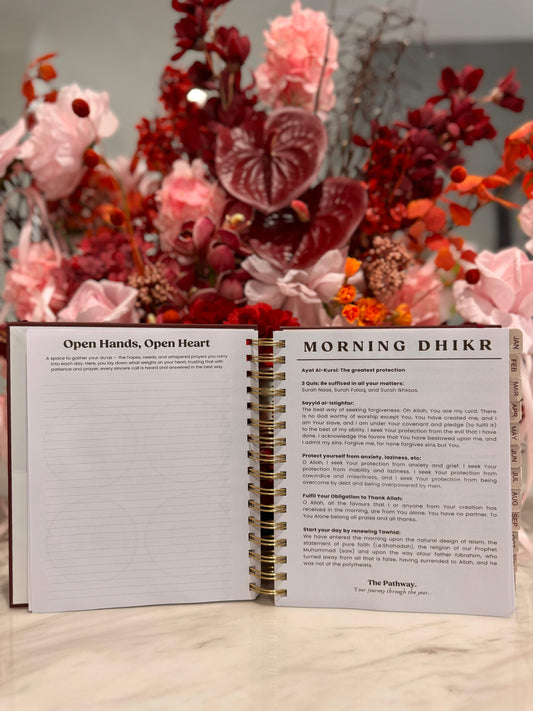 Open Hands, Open Heart
A space to gather your du'as — the hopes, needs, and whispered prayers you carry
into each day. Here, you lay down what weighs on your heart, trusting that with
patience and prayer, every sincere call is heard and answered in the best way.
MORNING DHIKR
Ayat Al-Kursi: The greatest protection
3 Quls: Be sufficed in all your matters:
Surah Naas, Surah Falaq, and Surah Ikhlaas.
Sayyid al-Istighfar:
The best way of seeking forgiveness: Oh Allah, You are my Lord. There
is no God worthy of worship except You. You have created me, and I
am Your slave, and I am under Your covenant and pledge (to fulfil it)
to the best of my ability. I seek Your protection from the evil that I have
done. I acknowledge the favors that You have bestowed upon me, and
I admit my sins. Forgive me, for none forgives sins but You.
Protect yourself from anxiety, laziness, etc:
O Allah, I seek Your protection from anxiety and grief. I seek Your
protection from inability and laziness. I seek Your protection from
cowardice and miserliness, and I seek Your protection from being
overcome by debt and being overpowered by men.
Fulfil Your Obligation to Thank Allah:
O Allah, all the favours that I or anyone from Your creation has
received in the morning, are from You alone. You have no partner. To
You Alone belong all praise and all thanks.
Start your day by renewing Tawhid:
We have entered the morning upon the natural design of Islam, the
statement of pure faith (i.e.Shahadah), the religion of our Prophet
Muhammad (saw) and upon the way ofour father IUbrahim, who
turned away from all that is false, having surrended to Allah, and he
was not of the polytheists.
The Pathway.
Your journey through the year.
JAN
FEB
MAR
APR
MAY
JUN
JUL
AUG
SEP